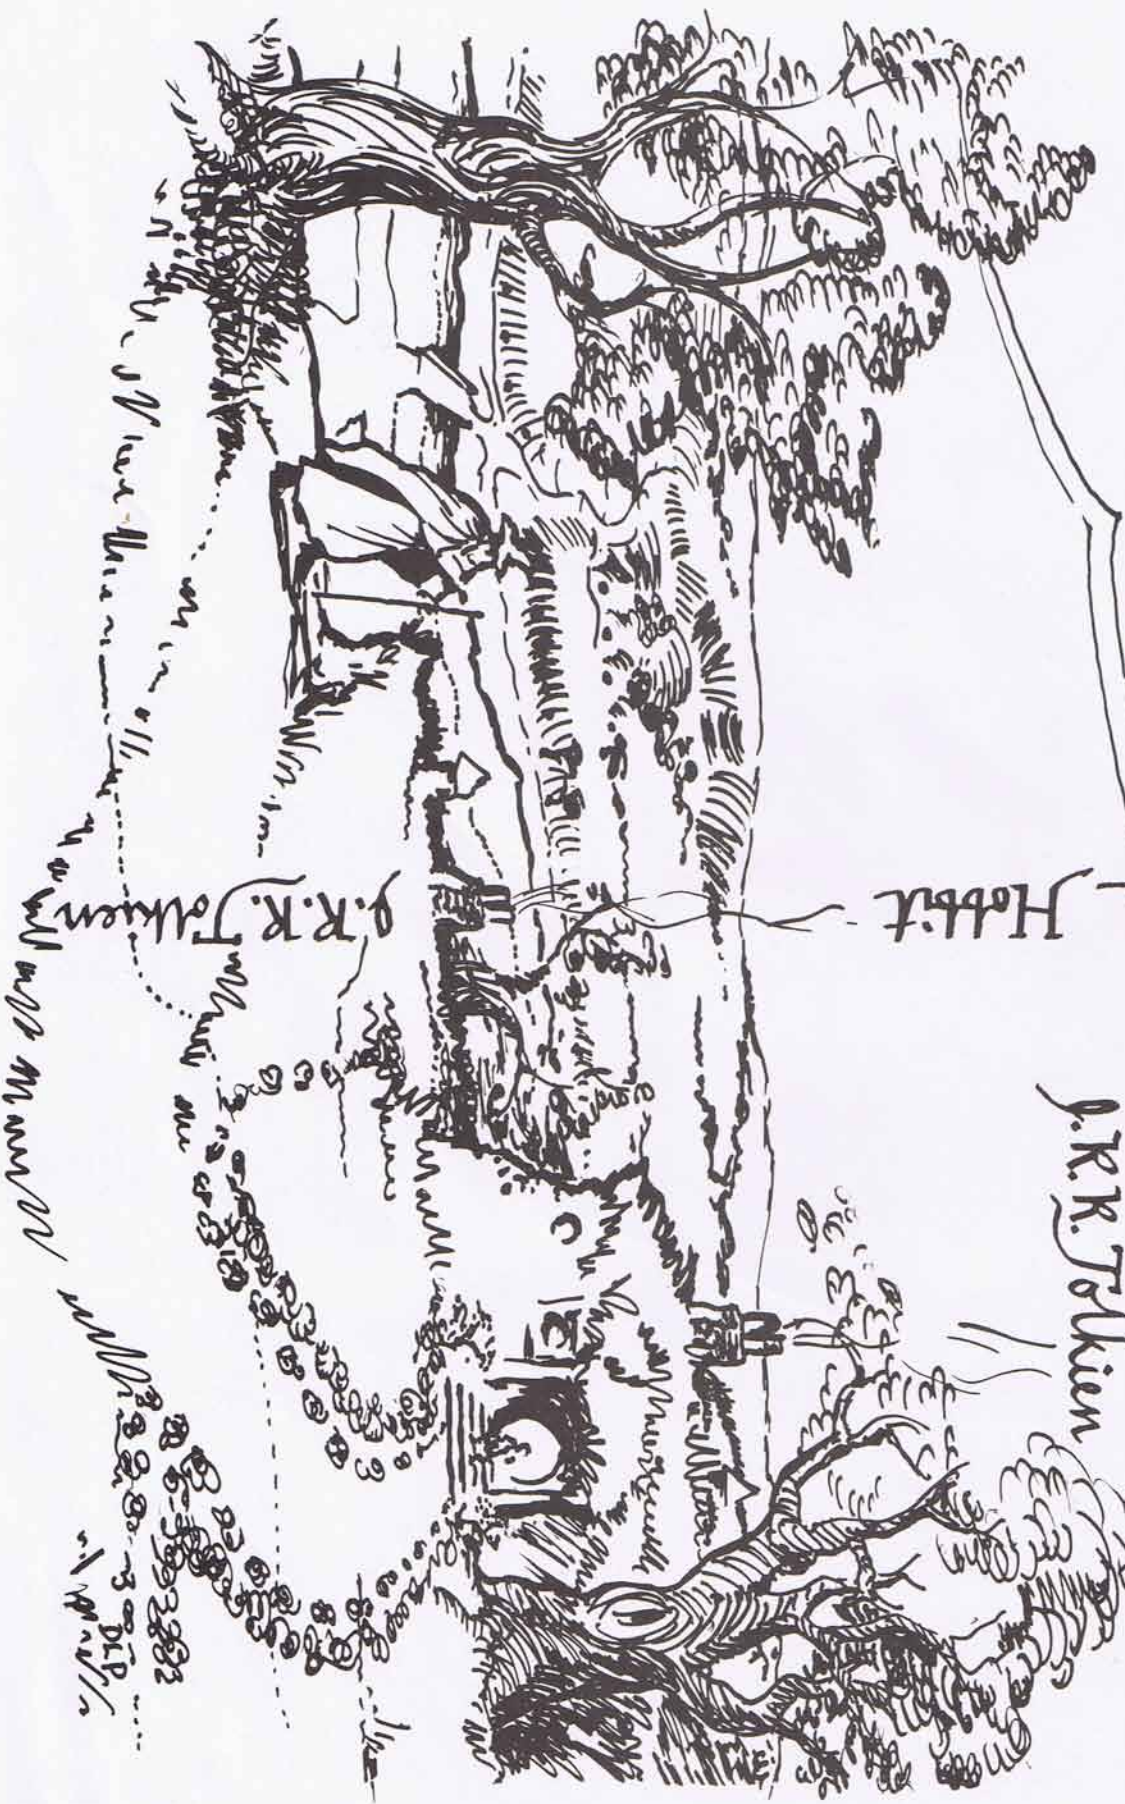 J.R.R. Tolkien
Hobbit
J.R.R. Tolkien
DLP